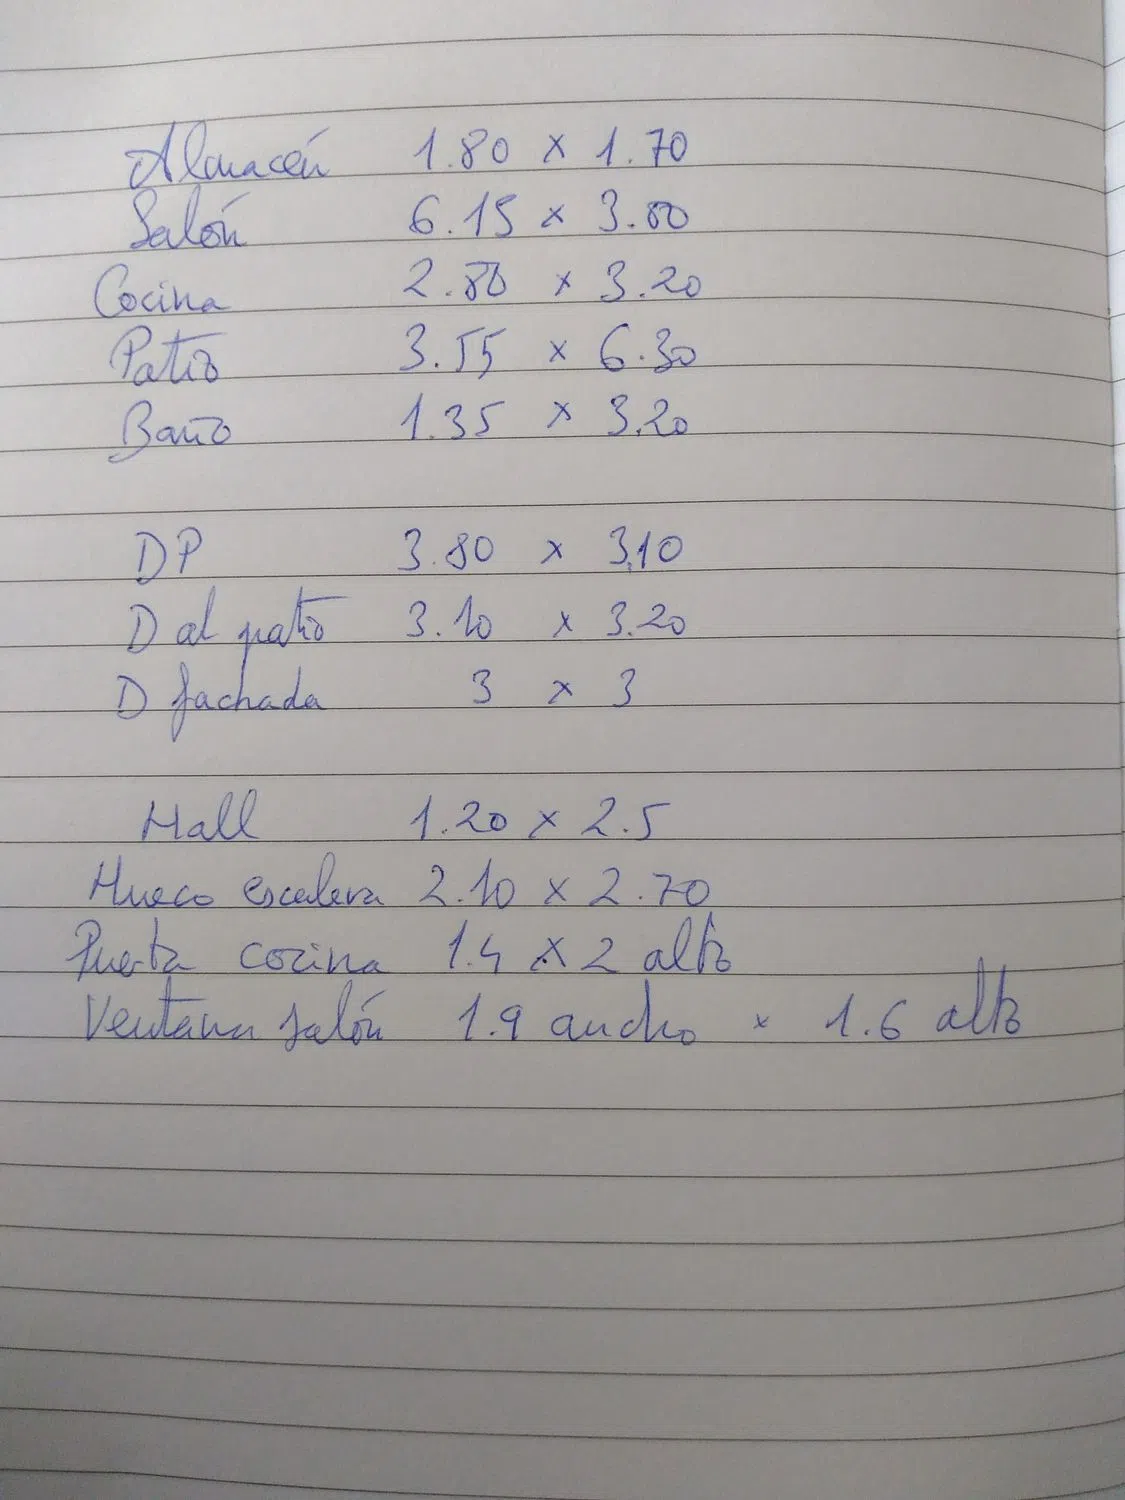 Almacén 1.80 x 1.70
Salón 6.15 x 3.80
Cocina 2.80 x 3.20
Patio 3.55 x 6.30
Baño 1.35 x 3.20
DP 3.80 x 3.10
D al patio 3.10 x 3.20
D fachada 3 x 3
Hall 1.20 x 2.5
Hueco escalera 2.10 x 2.70
Puerta cocina 1.4 x 2 alto
Ventana salón 1.9 ancho x 1.6 alto